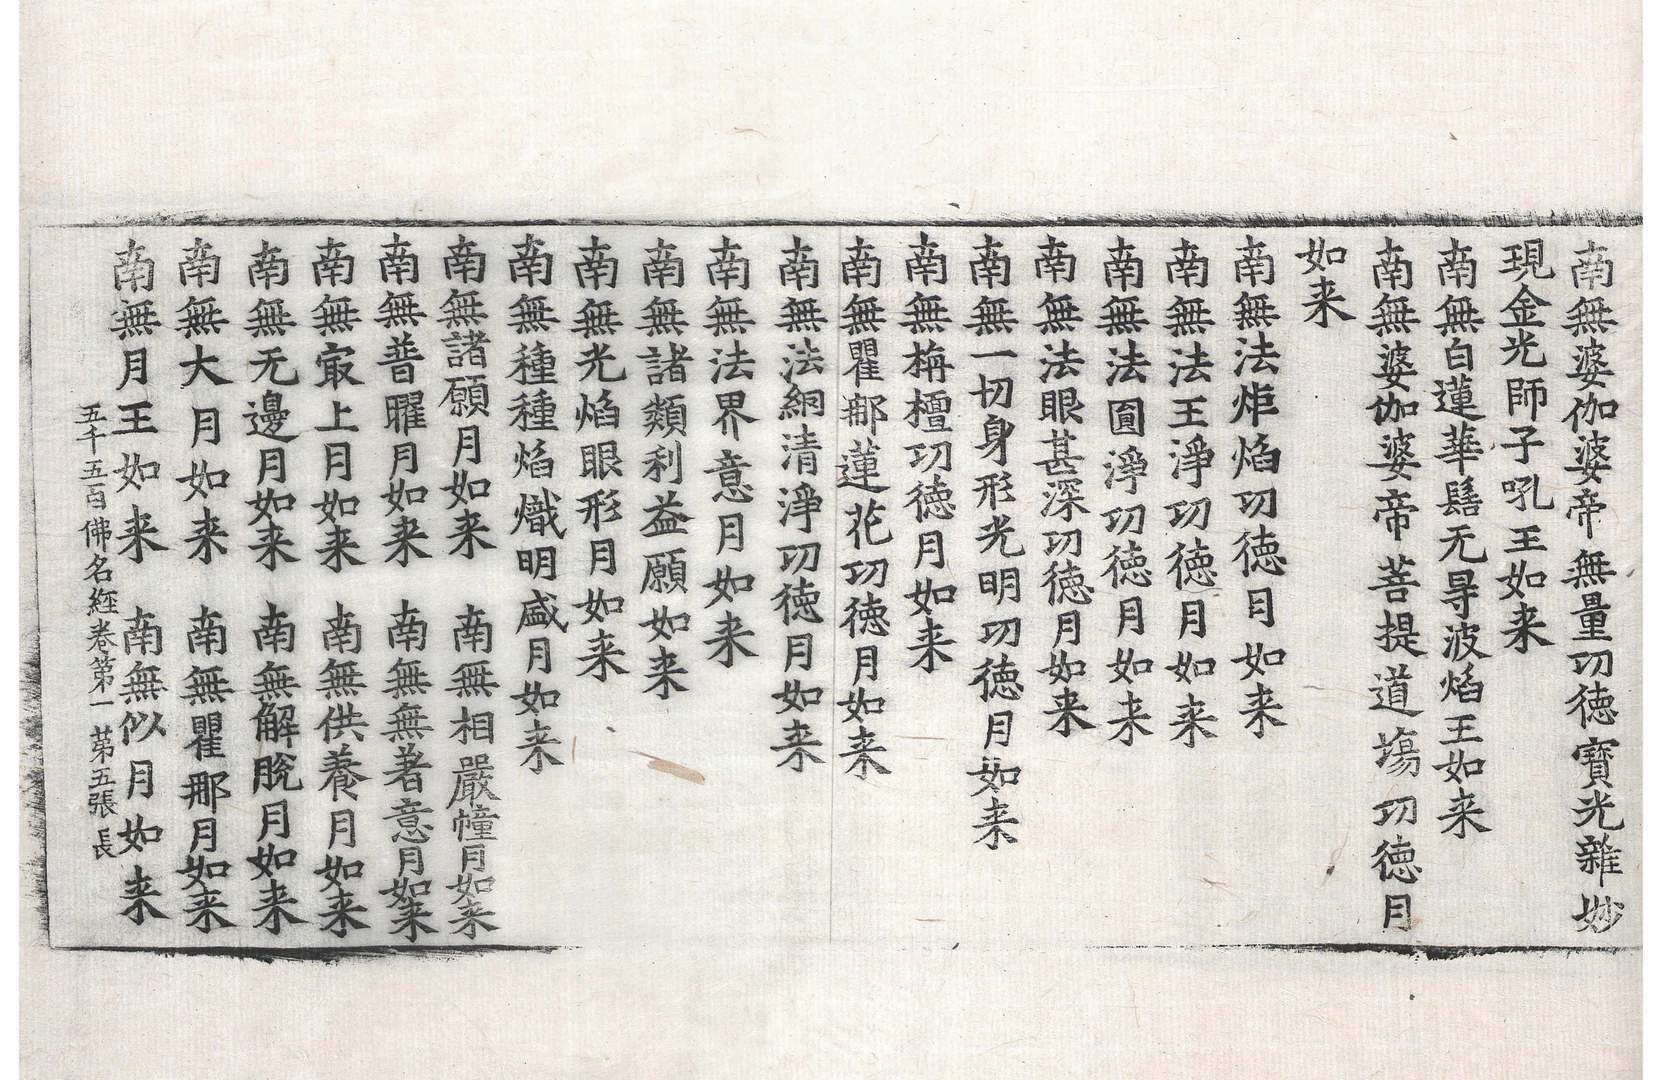 南無婆伽婆帝無量功徳寶光雜妙
現金光師子吼王如来
南無白蓮華髻无㝵波焰王如来
南無婆伽婆帝菩提道塲功徳月
如来
南無法炬焰功徳月如来
南無法王淨功徳月如来
南無法圎淨功徳月如来
南無法眼甚深功徳月如来
南無一切身形光明功徳月如来
南無栴檀功徳月如来
南無瞿郍蓮花功徳月如来
南無法網清淨功徳月如来
南無法界意月如来
南無諸類利益願如来
南無光焰眼形月如来
南無種種焰熾明盛月如来
南無諸願月如来　南無相嚴幢月如来
南無普曜月如来　南無無著意月如来
南無㝡上月如来　南無供養月如来
南無无邊月如来　南無解脫月如来
南無大月如来　南無瞿那月如来
南無月王如来　南無似月如来
五千五百佛名經卷第一　第五張　長